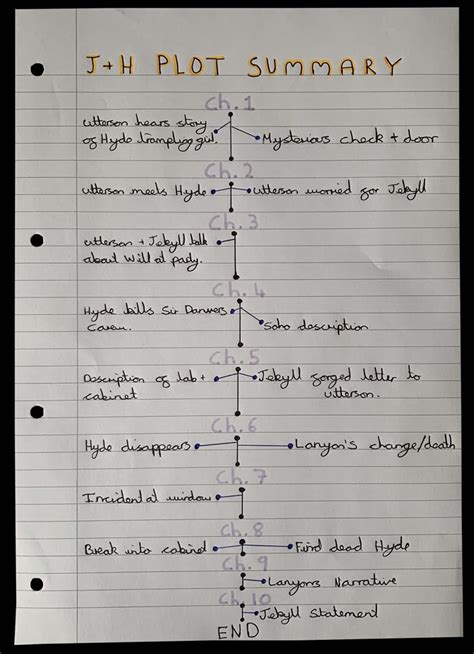 J+H PLOT SUMMARY
Ch.1
Utterson hears story
of Hyde trampling girl.
Mysterious check + door
Ch.2
Utterson meets Hyde
Utterson worried for Jekyll
Ch.3
Utterson + Jekyll talk
about Will at party.
Ch.4
Hyde kills Sir Danvers
Carew.
Soho description
Ch.5
Description of lab +
cabinet
Jekyll forged letter to
Utterson.
Ch.6
Hyde disappears
Lanyon's change/death
Ch.7
Incident at window
Ch.8
Break into cabinet
Find dead Hyde
Ch.9
Lanyons Narrative
Ch.10
Jekyll Statement
END